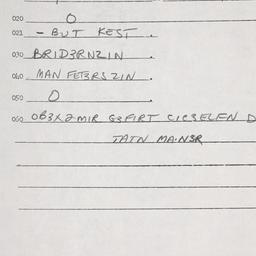 020 O
021 - BUT KEST.
030 BRIDERNZIN.
040 MAN FETERS ZIN.
050 O.
060 OB3X2MIR G3FIRT CICSELEN D
TATN MA.NSR